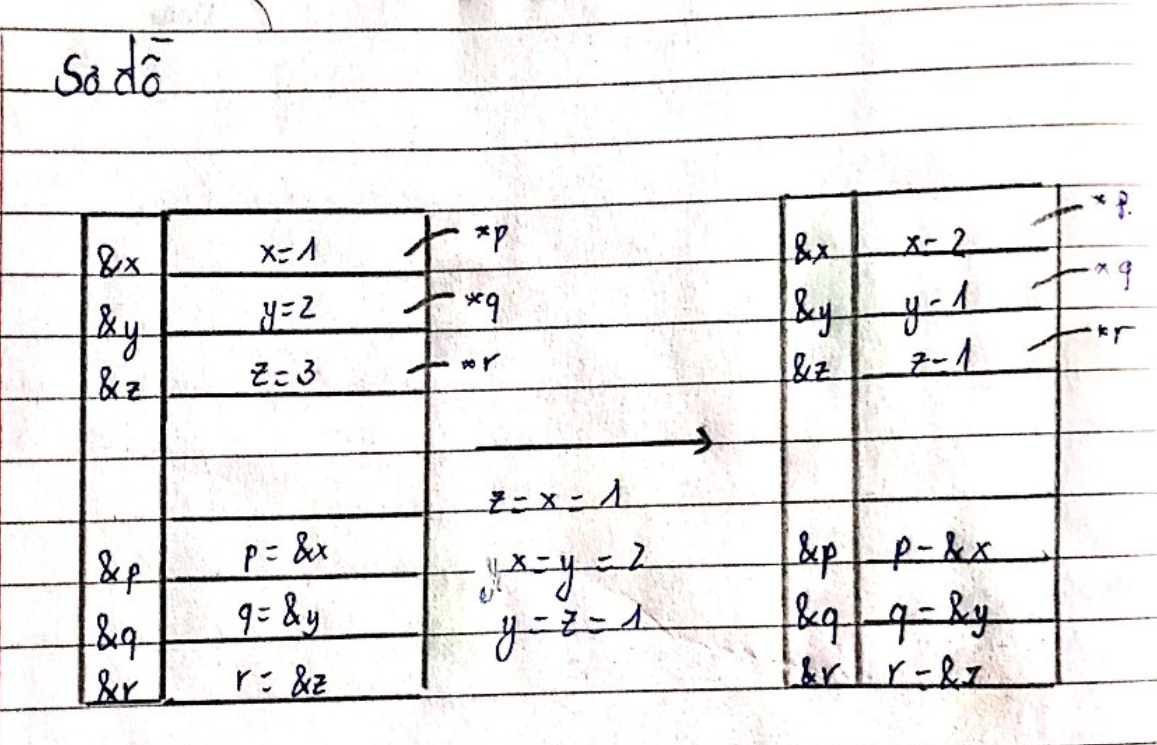 Sơ đồ
&x x=1 *p
&y y=2 *q
&z z=3 *r
&p p=&x
&q q=&y
&r r=&z
z=x=1
x=y=2
y=z=1
&x x=2 *p
&y y=1 *q
&z z=1 *r
&p p=&x
&q q=&y
&r r=&z